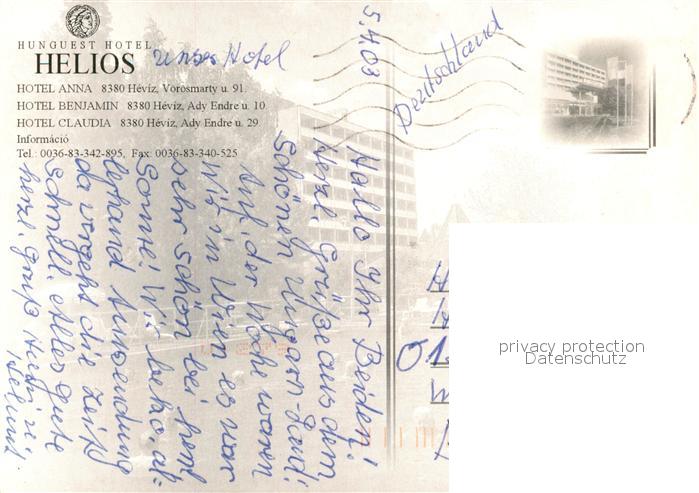 HUNGUEST HOTEL
HELIOS
unser Hotel
HOTEL ANNA 8380 Hévíz, Vörösmarty u. 91.
HOTEL BENJAMIN 8380 Hévíz, Ady Endre u. 10.
HOTEL CLAUDIA 8380 Hévíz, Ady Endre u. 29.
Információ
Tel.: 0036-83-342-895, Fax: 0036-83-340-525
5.4.03
Hallo Ihr Beiden!
Herzl. Grüße aus dem
schönen Ungarn-Land!
Auf der Woche waren
Wir in Wien es war
sehr schön bei
Sonne! Wir
Anwendung
da vergeht die Zeit
schnell. Alles gute
herzl. Gruß
Helmut
Deutschland
01
privacy protection
Datenschutz